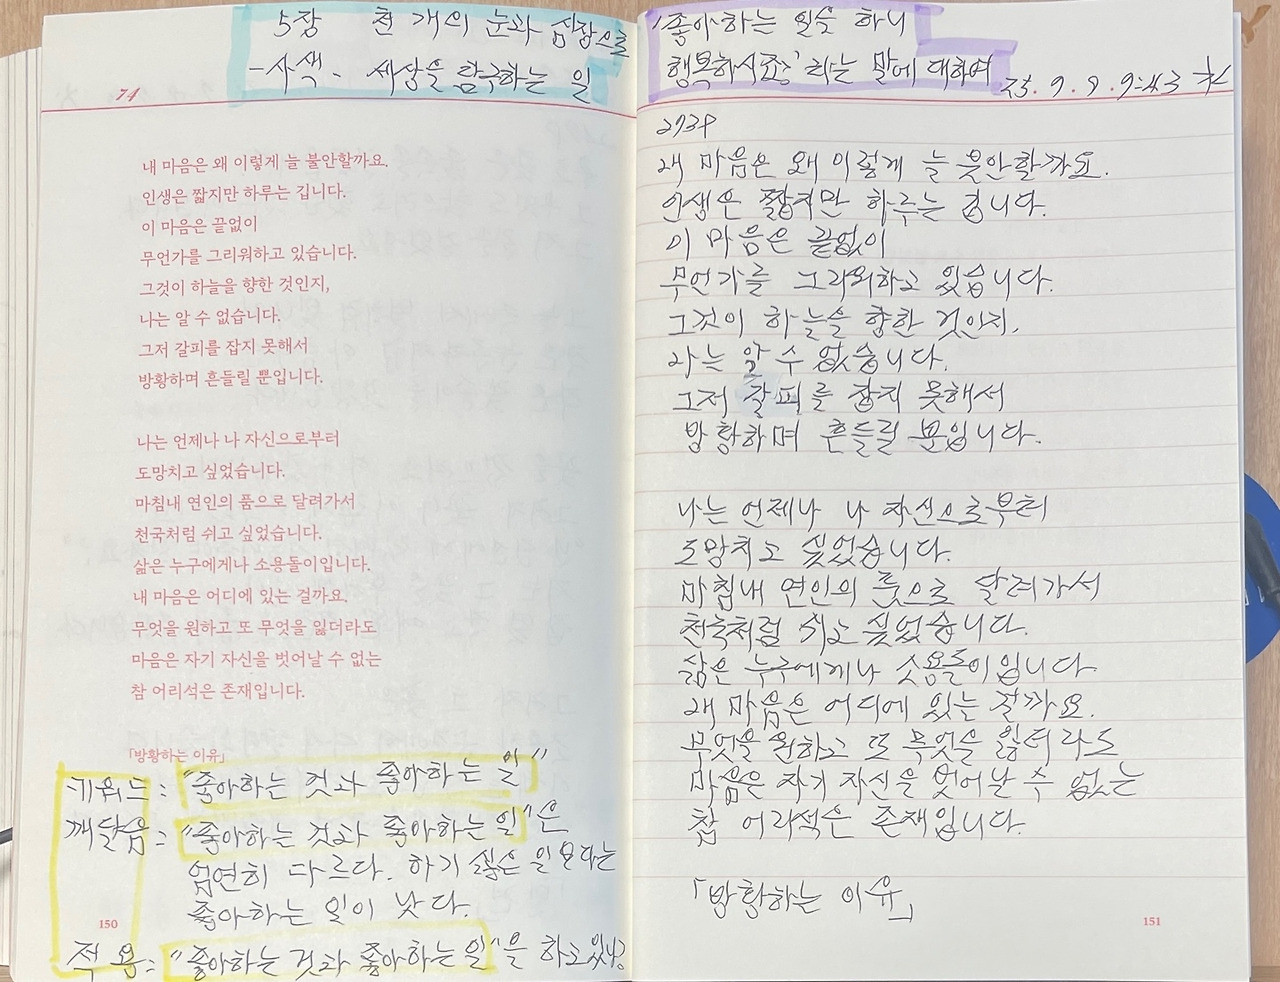 5장 천 개의 눈과 심장으로
-사색. 세상을 탐구하는 일
74
내 마음은 왜 이렇게 늘 불안할까요.
인생은 짧지만 하루는 깁니다.
이 마음은 끝없이
무언가를 그리워하고 있습니다.
그것이 하늘을 향한 것인지,
나는 알 수 없습니다.
그저 갈피를 잡지 못해서
방황하며 흔들릴 뿐입니다.
나는 언제나 나 자신으로부터
도망치고 싶었습니다.
마침내 연인의 품으로 달려가서
천국처럼 쉬고 싶었습니다.
삶은 누구에게나 소용돌이입니다.
내 마음은 어디에 있는 걸까요.
무엇을 원하고 또 무엇을 잃더라도
마음은 자기 자신을 벗어날 수 없는
참 어리석은 존재입니다.
「방황하는 이유」
키워드 : "좋아하는 것과 좋아하는 일"
깨달음 = "좋아하는 것과 좋아하는 일"은
엄연히 다르다. 하기 싫은 일보다는
좋아하는 일이 낫다.
150
적용 = "좋아하는 것과 좋아하는 일"을 하고있나?
"좋아하는 일을 하니
행복하시죠?'라는 말에 대하여
25. 9. 9. 9:43
273P
내 마음은 왜 이렇게 늘 불안할까요.
인생은 짧지만 하루는 깁니다.
이 마음은 끝없이
무언가를 그리워하고 있습니다.
그것이 하늘을 향한 것인지,
나는 알 수 없습니다.
그저 갈피를 잡지 못해서
방황하며 흔들릴 뿐입니다.
나는 언제나 나 자신으로부터
도망치고 싶었습니다.
마침내 연인의 품으로 달려가서
천국처럼 쉬고 싶었습니다.
삶은 누구에게나 소용돌이입니다
내 마음은 어디에 있는 걸까요.
무엇을 원하고 또 무엇을 잃더라도
마음은 자기 자신을 벗어날 수 없는
참 어리석은 존재입니다.
「방황하는 이유」
151